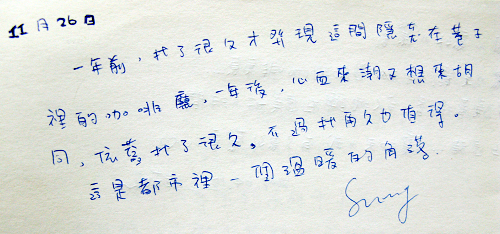 11月26日
一年前，找了很久才發現這間隱身在巷子
裡的咖啡廳，一年後，心血來潮又想來胡
同，依舊找了很久。不過找再久也值得。
這是都市裡一個溫暖的角落.